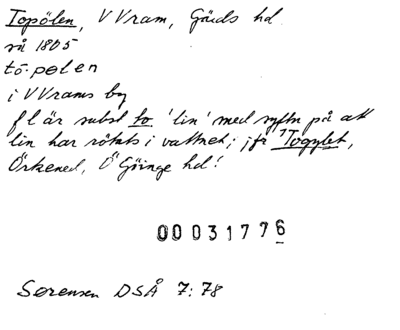 Topölen, V Vram, Gärds hd
rå 1805
tò·pølen
i V Vrams by
f l är subst to 'lin' med syftn på att
lin har rötats i vattnet; jfr ¹Togylet,
Örkened, Ö Göinge hd!
00031776
Sørensen DSÅ 7:78